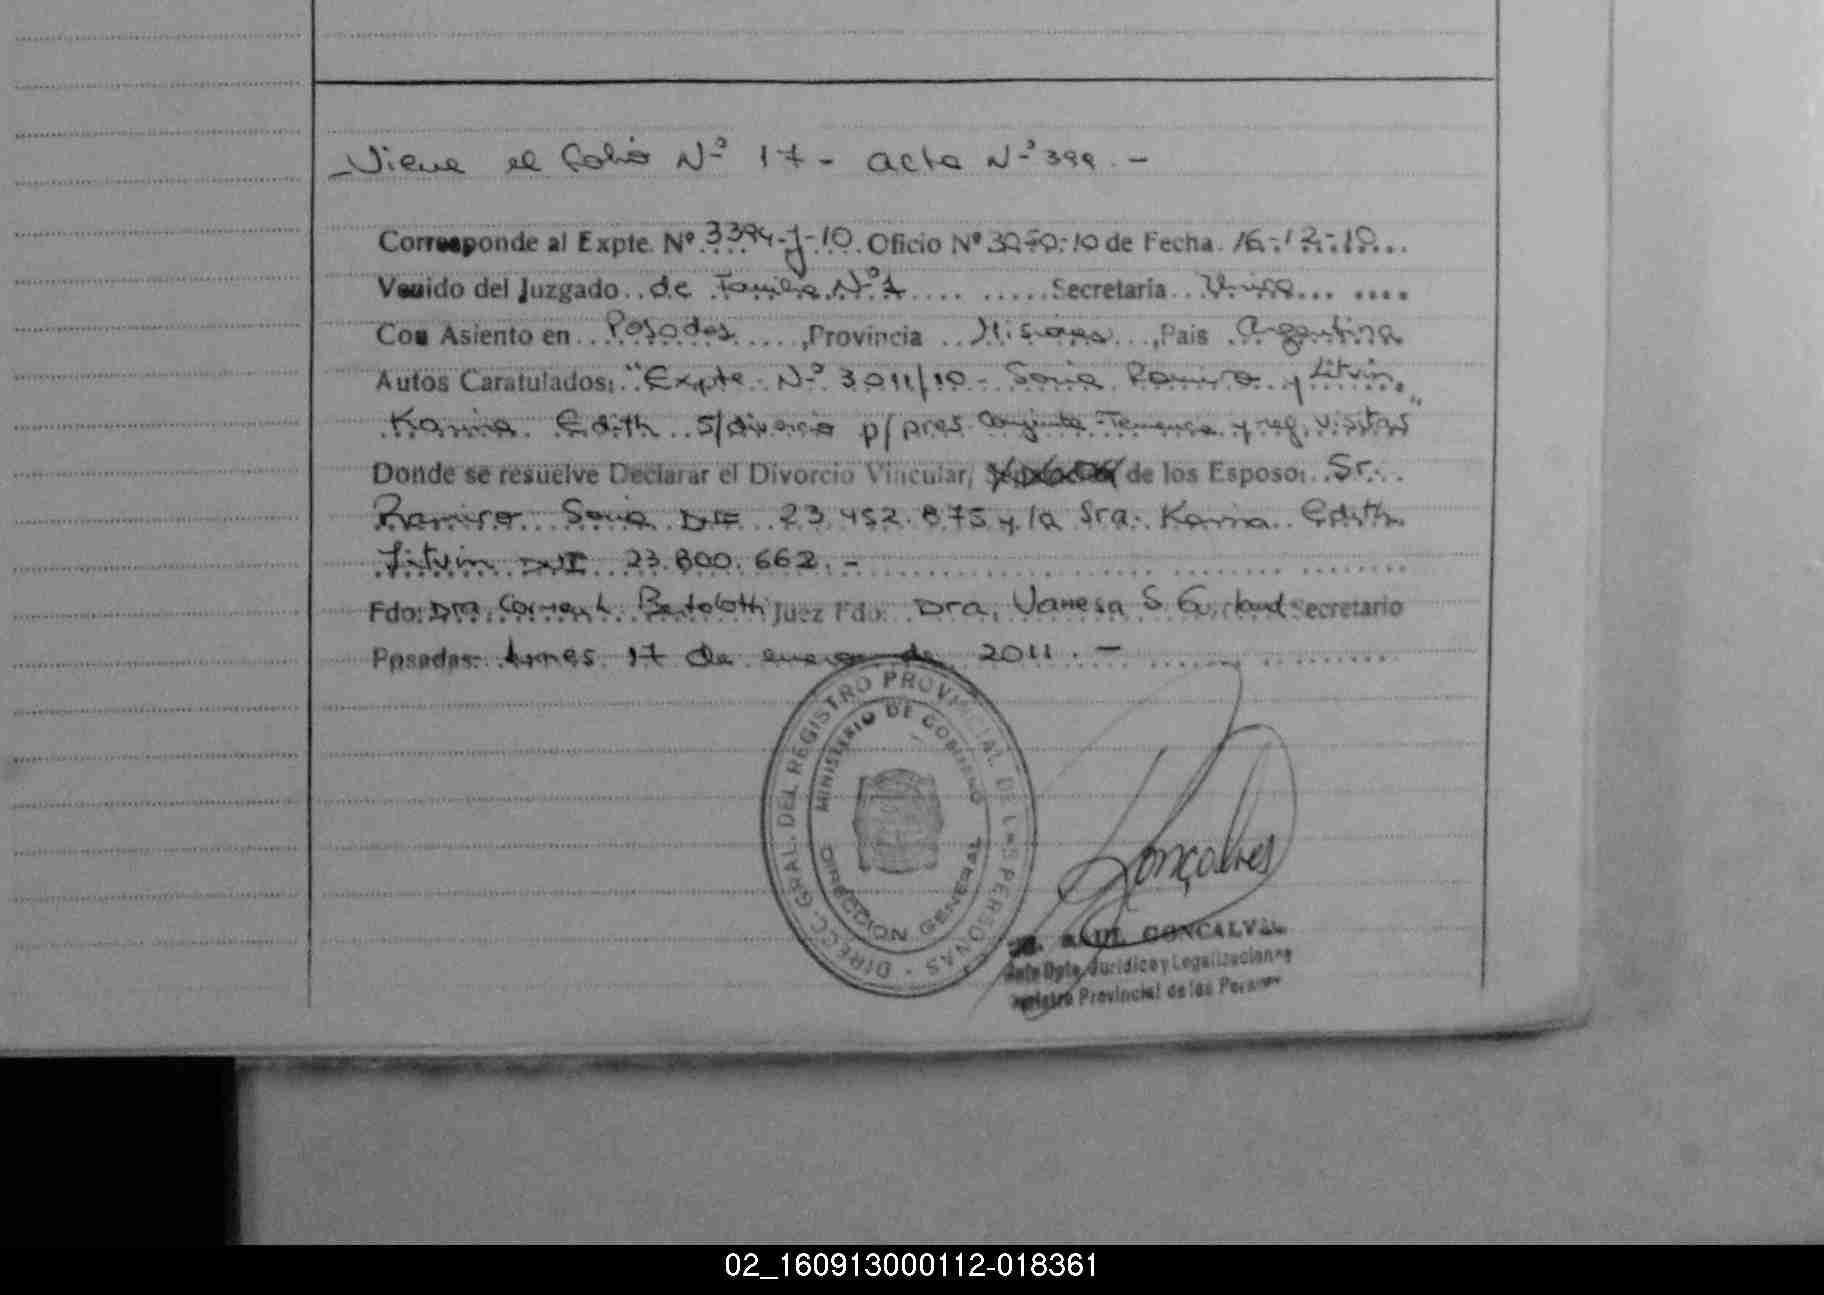 _Viene el folio Nº 17 - acta Nº 399. -
Corresponde al Expte. Nº 3394-J-10. Oficio Nº 3050-10 de Fecha. 16-12-10...
Venido del Juzgado..de Familia Nº 1.... .....Secretaría..Unica... ....
Con Asiento en...Posadas.....,Provincia ..Misiones...,Pais .Argentina
Autos Caratulados: "Expte. Nº 3011/10 - Soria Ramiro y Litvin
Karina Edith S/divorcio p/pres. Conjunta - Tenencia y reg. visitas"
Donde se resuelve Declarar el Divorcio Vincular, de los Esposo: ..Sr...
Ramiro Soria DNI 23.452.875 y la Sra. Karina Edith
Litvin DNI 23.800.662. -
Fdo: Dra. Carmen L. Bertolotti Juez Fdo: Dra. Vanesa S. Secretario
Posadas: Lunes 17 de enero de 2011. -
DIRECC. GRAL. DEL REGISTRO PROVINCIAL DE LAS PERSONAS
MINISTERIO DE GOBIERNO
DIRECCION GENERAL
Gonçalves
RAUL GONCALVES
Jefe Dpto. Jurídico y Legalizaciones
Registro Provincial de las Personas
02_160913000112-018361